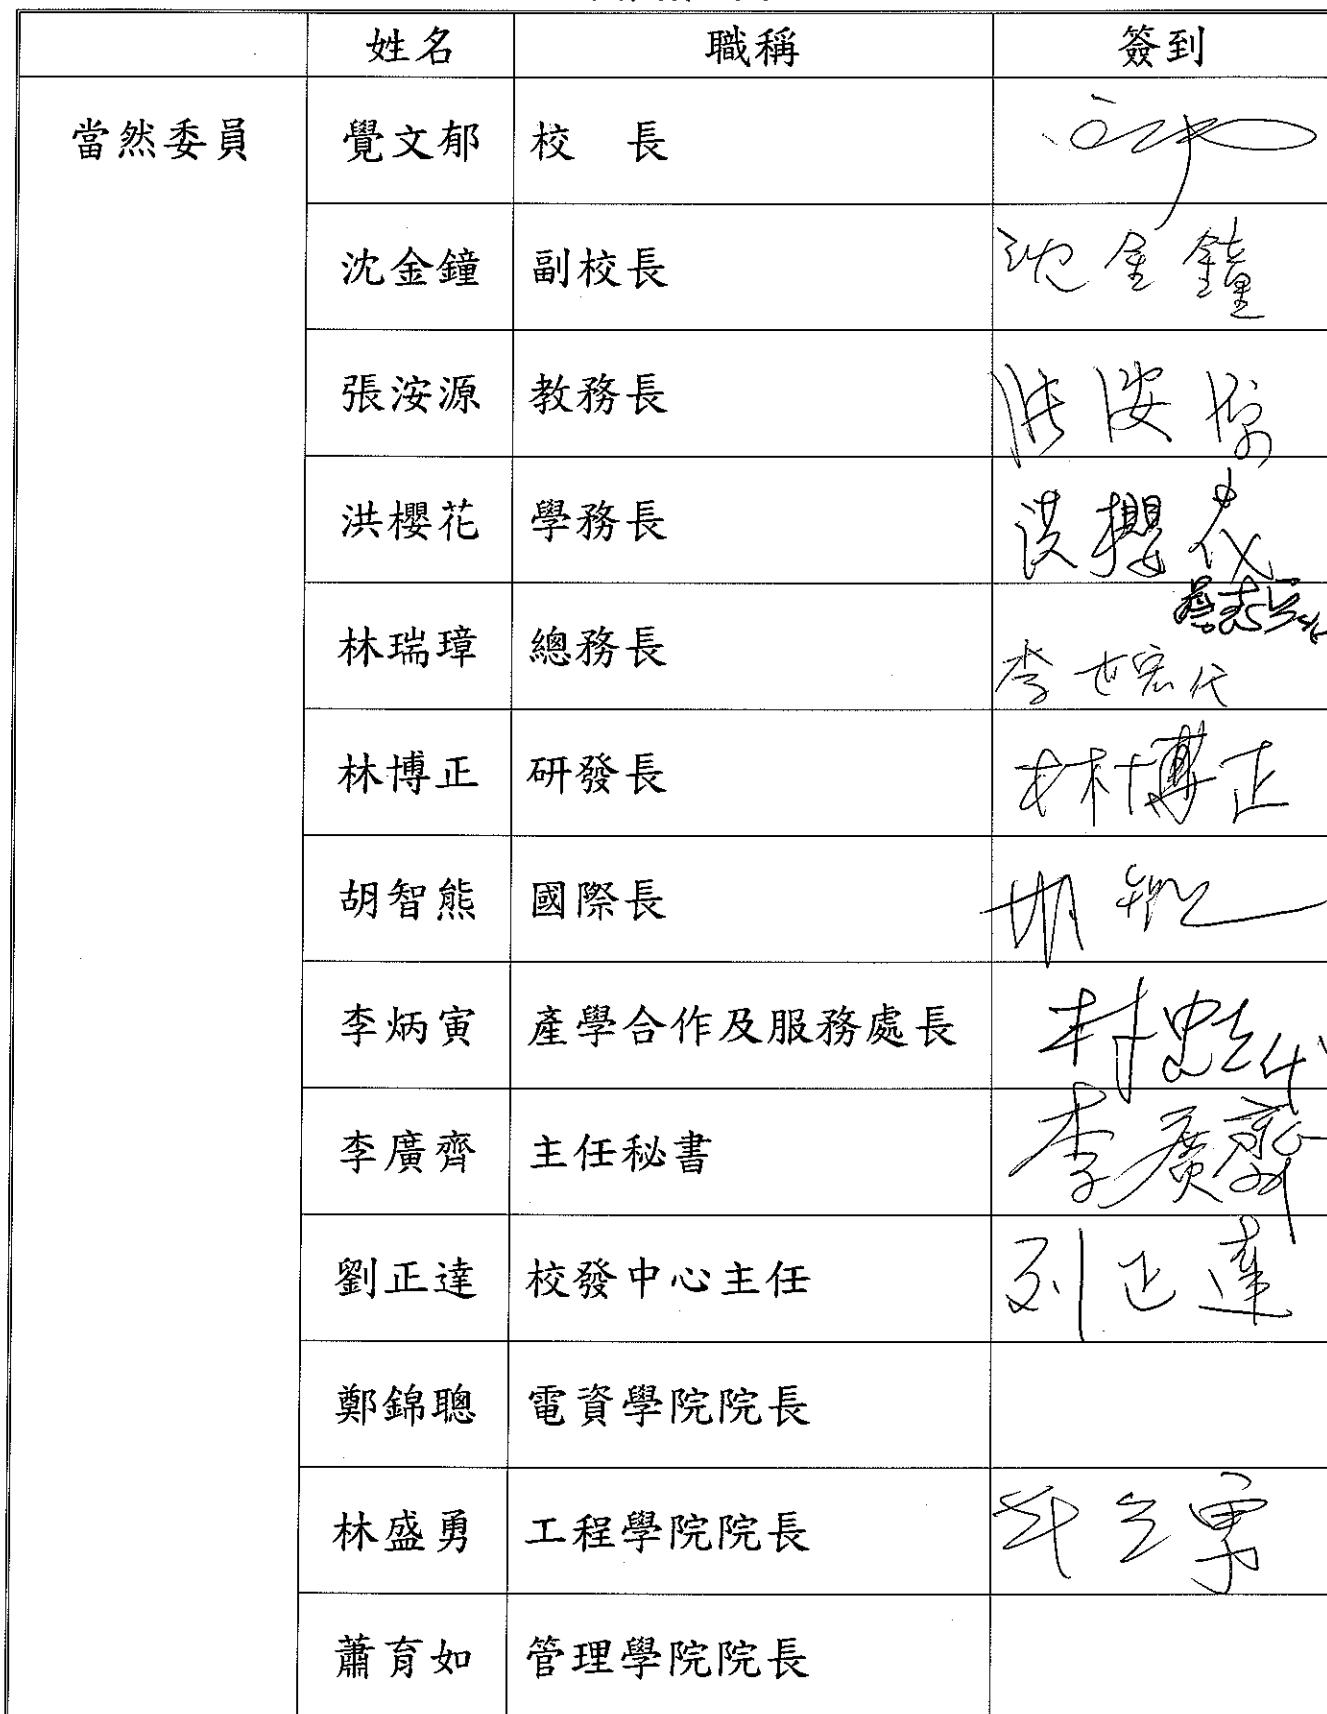 姓名 職稱 簽到
當然委員 覺文郁 校 長
沈金鐘 副校長 沈金鐘
張洝源 教務長 張洝源
洪櫻花 學務長 洪櫻花
林瑞璋 總務長 李世宏代
林博正 研發長 林博正
胡智熊 國際長 胡智熊
李炳寅 產學合作及服務處長
李廣齊 主任秘書 李廣齊
劉正達 校發中心主任 刘正達
鄭錦聰 電資學院院長
林盛勇 工程學院院長
蕭育如 管理學院院長